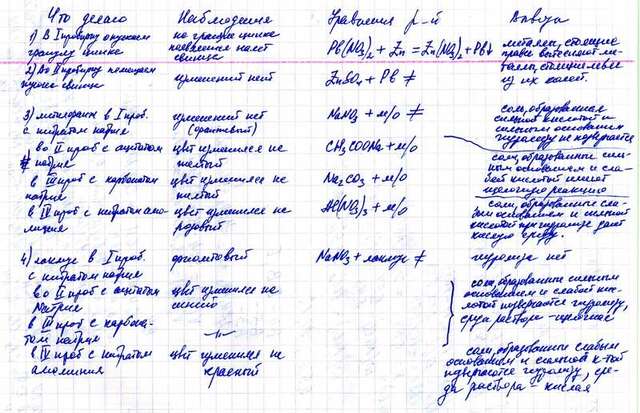 Что делаю
Наблюдения
Уравнения р-й
Вывода
1) В I пробирку опускаем
гранулу цинка
на грануле цинка
появляется налет
свинца
Pb(NO3)2 + Zn = Zn(NO3)2 + Pb↓
металлы, стоящие
правее вытесняют ме-
таллы, стоящие левее
из их солей.
2) Во II пробирку помещаем
кусочк свинца
изменений нет
ZnSO4 + Pb ≠
3) метилоранж в I проб.
с нитратом натрия
изменений нет
(оранжевый)
NaNO3 + м/о ≠
соли, образованная
сильной кислотой и
сильным основанием
гидролизу не подвергается
во II проб с ацетатом
натрия
цвет изменился на
желтый
CH3COONa + м/о
соли, образованные силь-
ным основанием и сла-
бой кислотой имеют
щелочную реакцию
в III проб с карбонатом
натрия
цвет изменился на
желтый
Na2CO3 + м/о
в IV проб с нитратом алю-
миния
цвет изменился на
розовый
Al(NO3)3 + м/о
соли, образованные сла-
бым основанием и сильной
кислотой при гидролизе дает
кислую среду.
4) лакмус в I проб.
с нитратом натрия
фиолетовый
NaNO3 + лакмус ≠
гидролиза нет
во II проб с ацетатом
натрия
цвет изменился на
синий
соли, образованные сильным
основанием и слабой кис-
лотой подвергаются гидролизу,
среда раствора - щелочная
в III проб с карбона-
том натрия
-//-
в IV проб с нитратом
алюминия
цвет изменился на
красный
соли, образованные слабым
основанием и сильной к-той
подвергаются гидролизу, сре-
да раствора - кислая